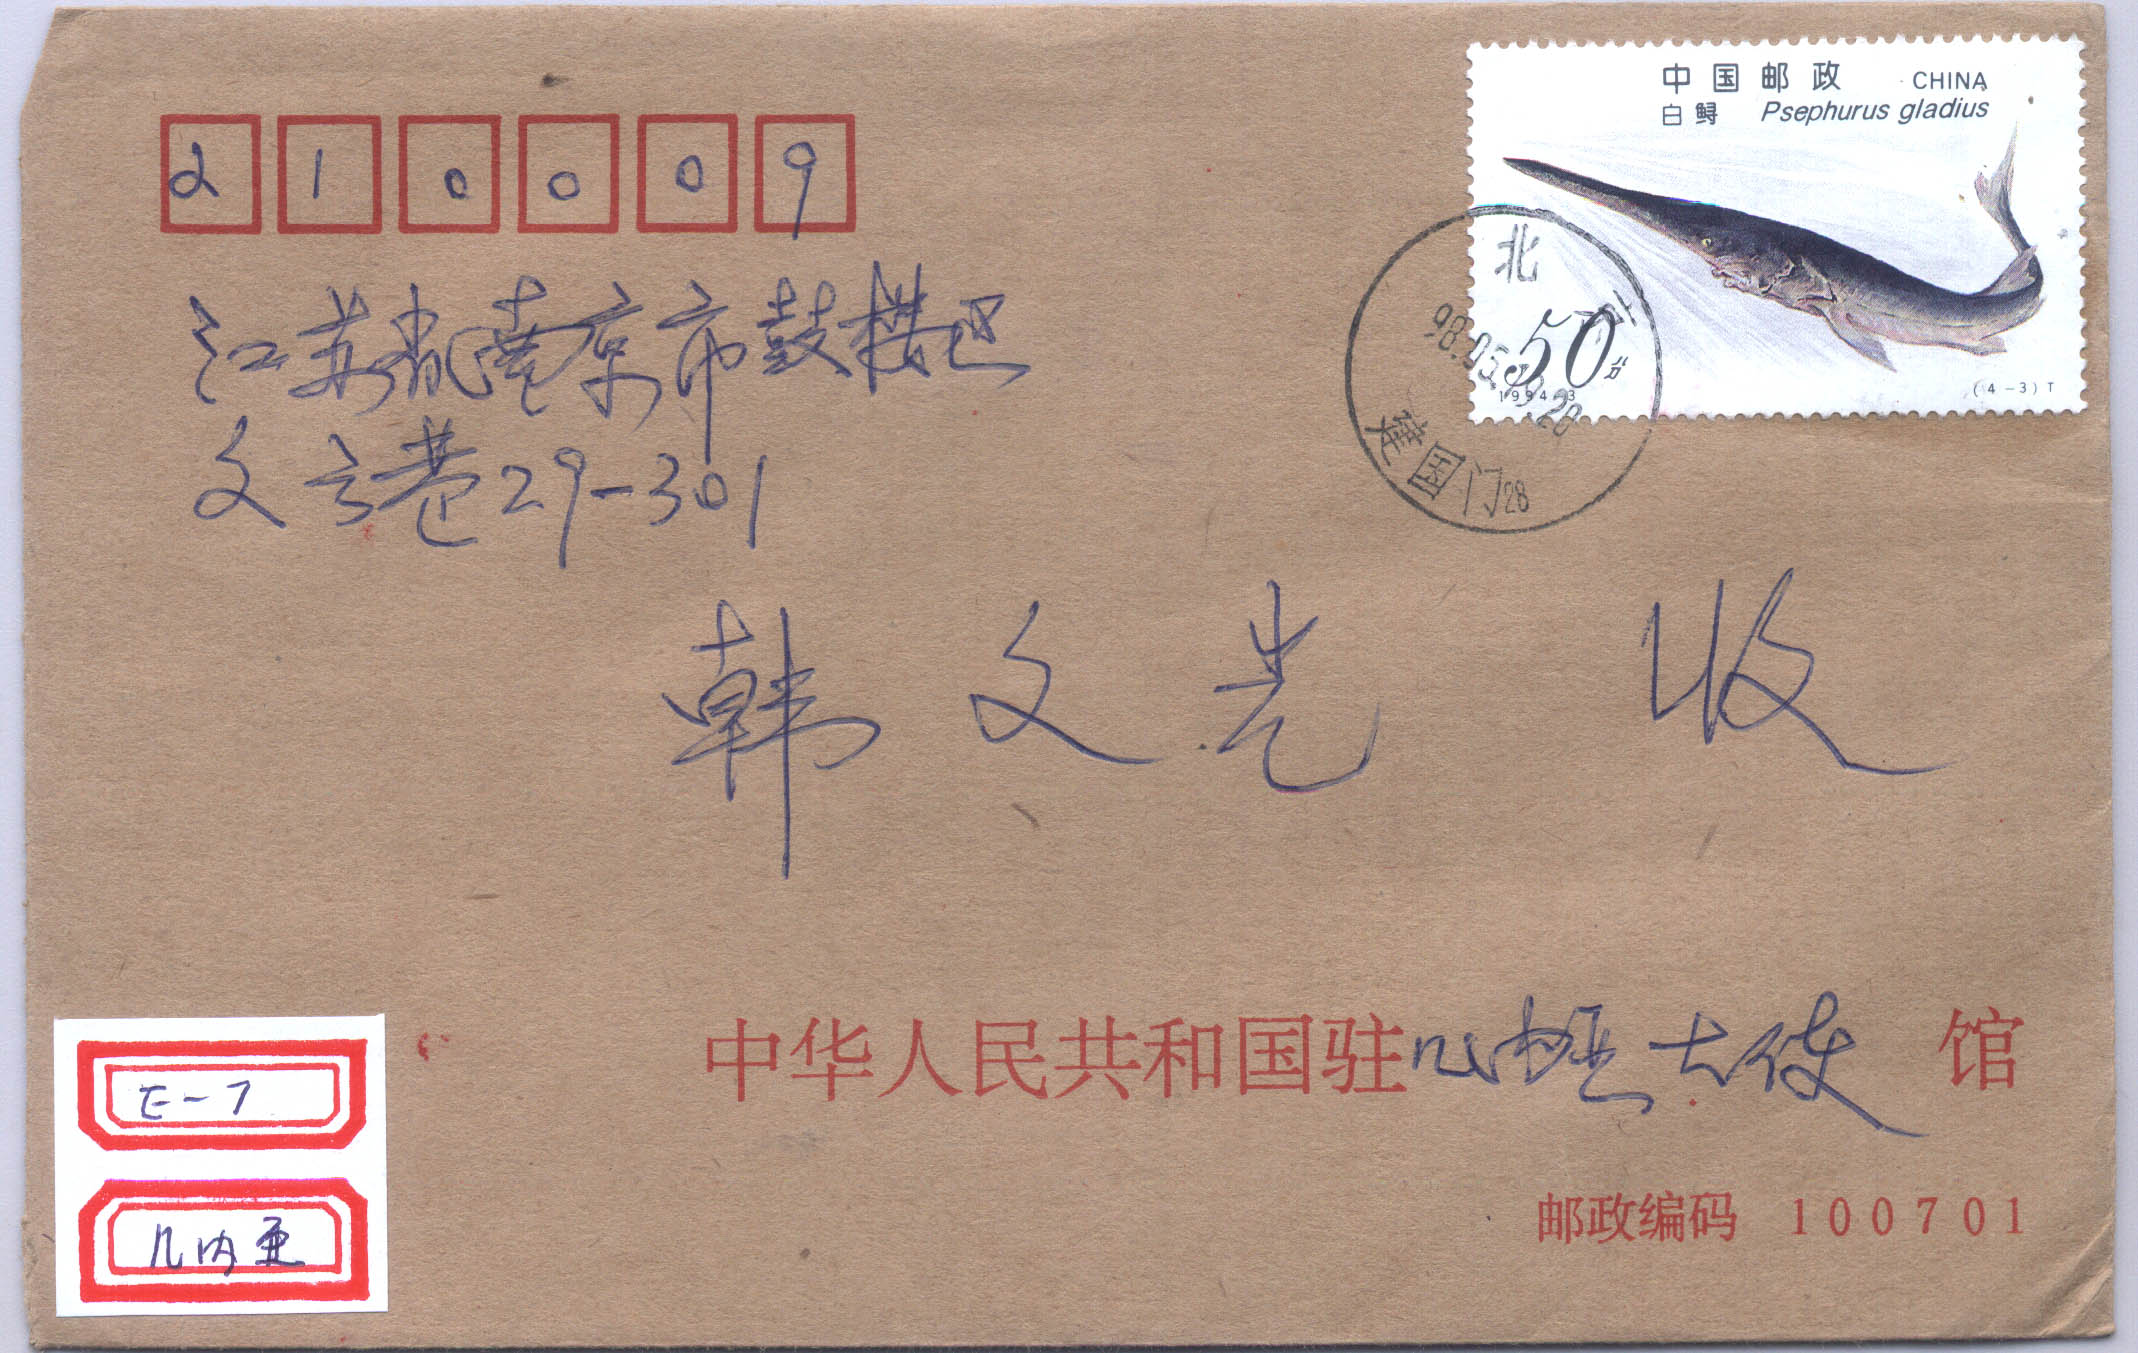 210009
中国邮政 CHINA
白鲟 Psephurus gladius
50分
1994-3
(4-3)T
北京
98.05.
.20
建国门28
江苏省南京市鼓楼区
文云巷29-301
韩文光 收
中华人民共和国驻几内亚大使馆
邮政编码 100701
E-7
几内亚